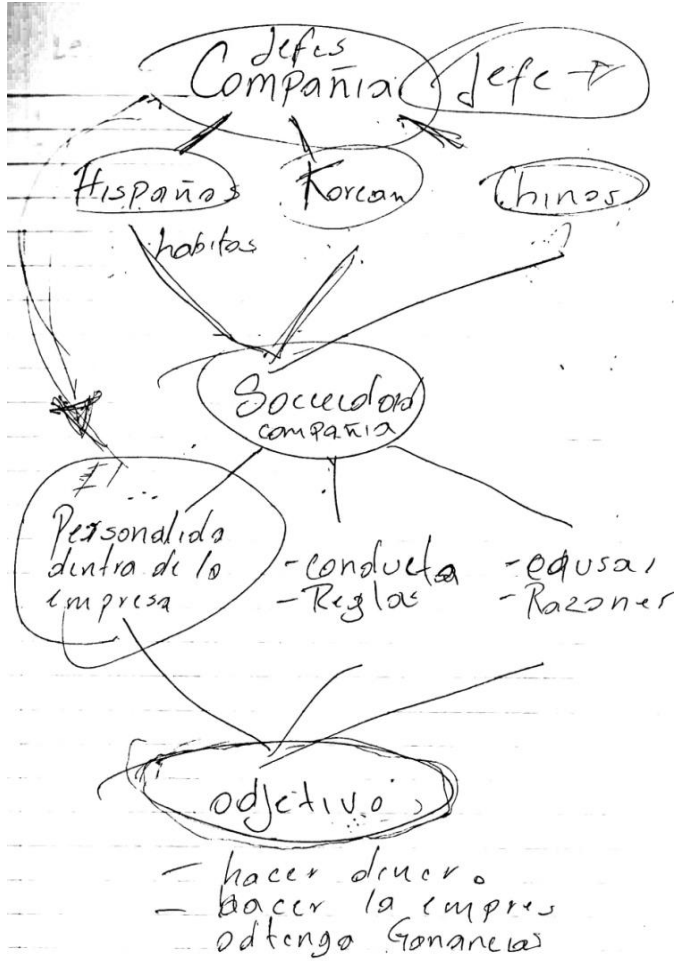 Jefes
Compañia
Jefe
Hispaños
Korean
Chinos
habitos
Soccuedad
compañia
Personalida
dentra de lo
empresa
- conducta
- Reglas
- Razones
odjetivo
- hacer dinero
- hacer la empres
odtenga Gonancias